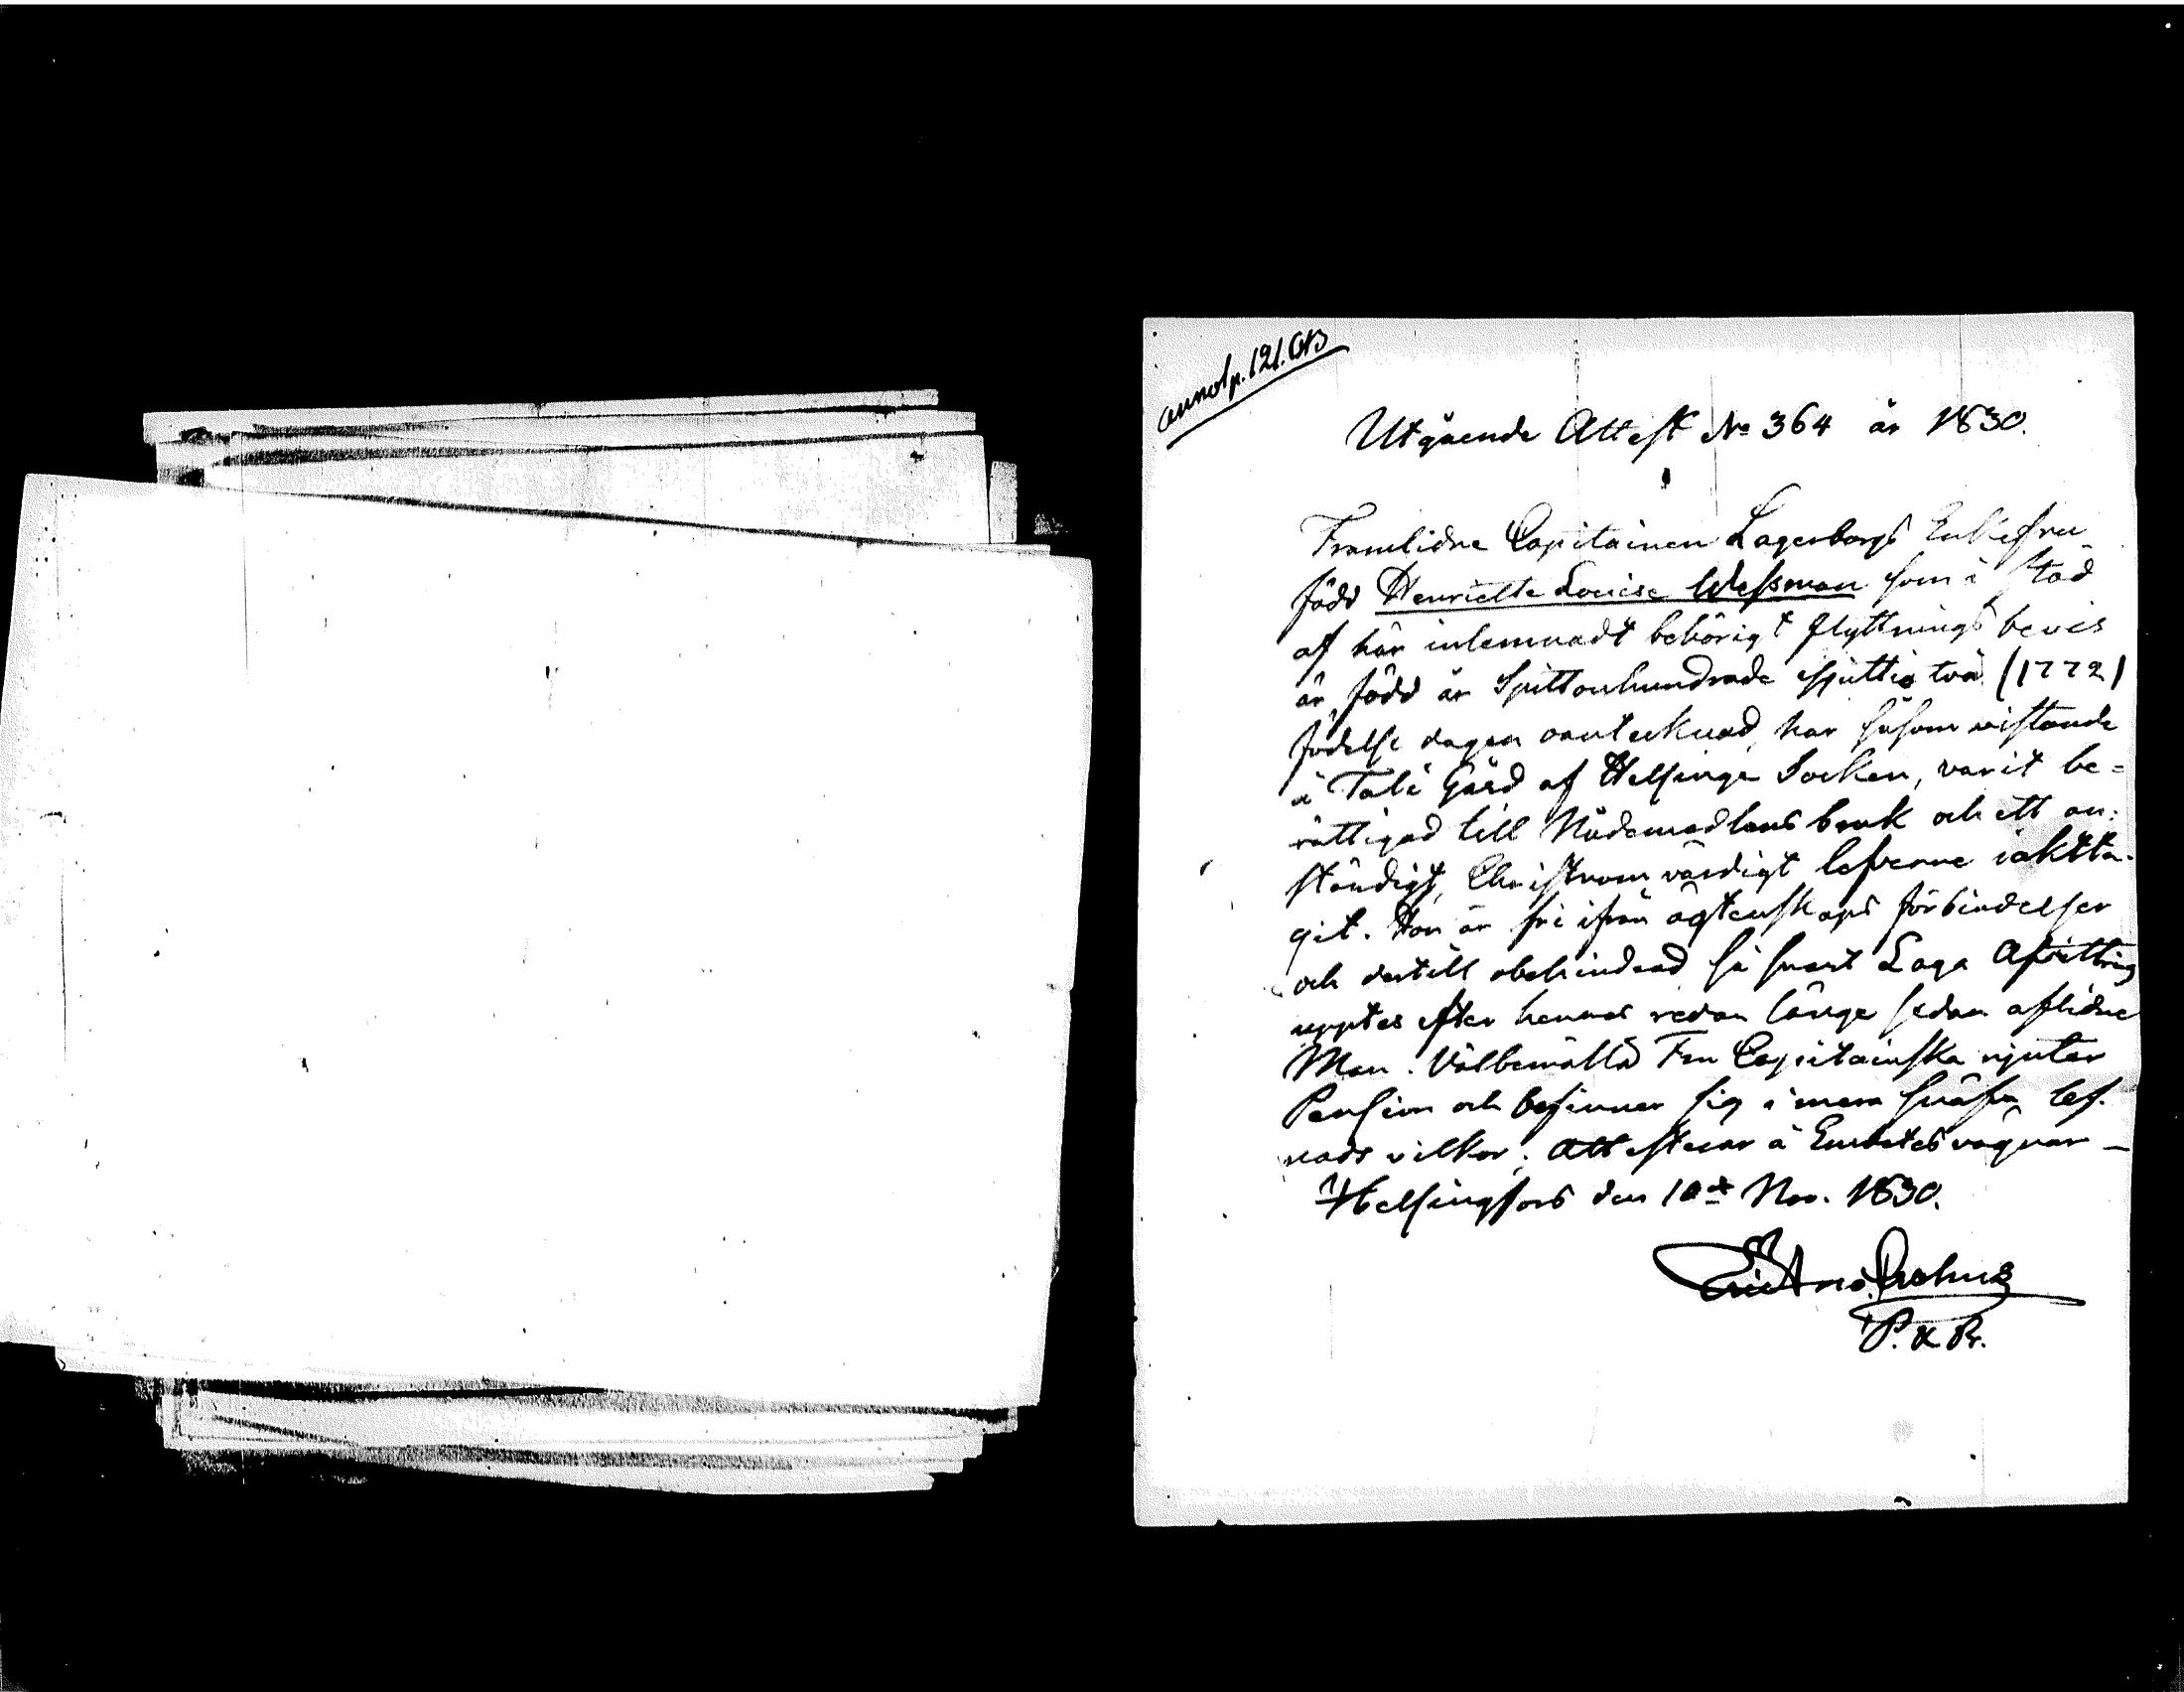 annot p. 121. CB
Utgående Attest No 364 år 1830.
Framlidne Capitainen Lagerborgs Enkefru
född Henriette Louise Wessman som i stöd
af här inlemnadt behörigt flyttnings bevis
är född år Sjuttonhundrade sjuttio två (1772)
födelse dagen oantecknad, har såsom vistande
å Tali Gård af Helsinge Socken, varit be=
rättigad till Nådemedlens bruk och ett an=
ständigt, Christnom värdigt lefverne iaktta-
git. Hon är fri ifrån ägtenskaps förbindelser
och dertill obehindrad så snart Laga Afvittring
upptes efter hennes redan länge sedan aflidne
Man. Välbemälta Fru Capitainska njuter
Pension och befinner sig i mera knäfva lef-
nads vilkor; Attesterar å Embetes vägnar —
Helsingfors den 10de Nov. 1830.
Crohns
P. & Pr.